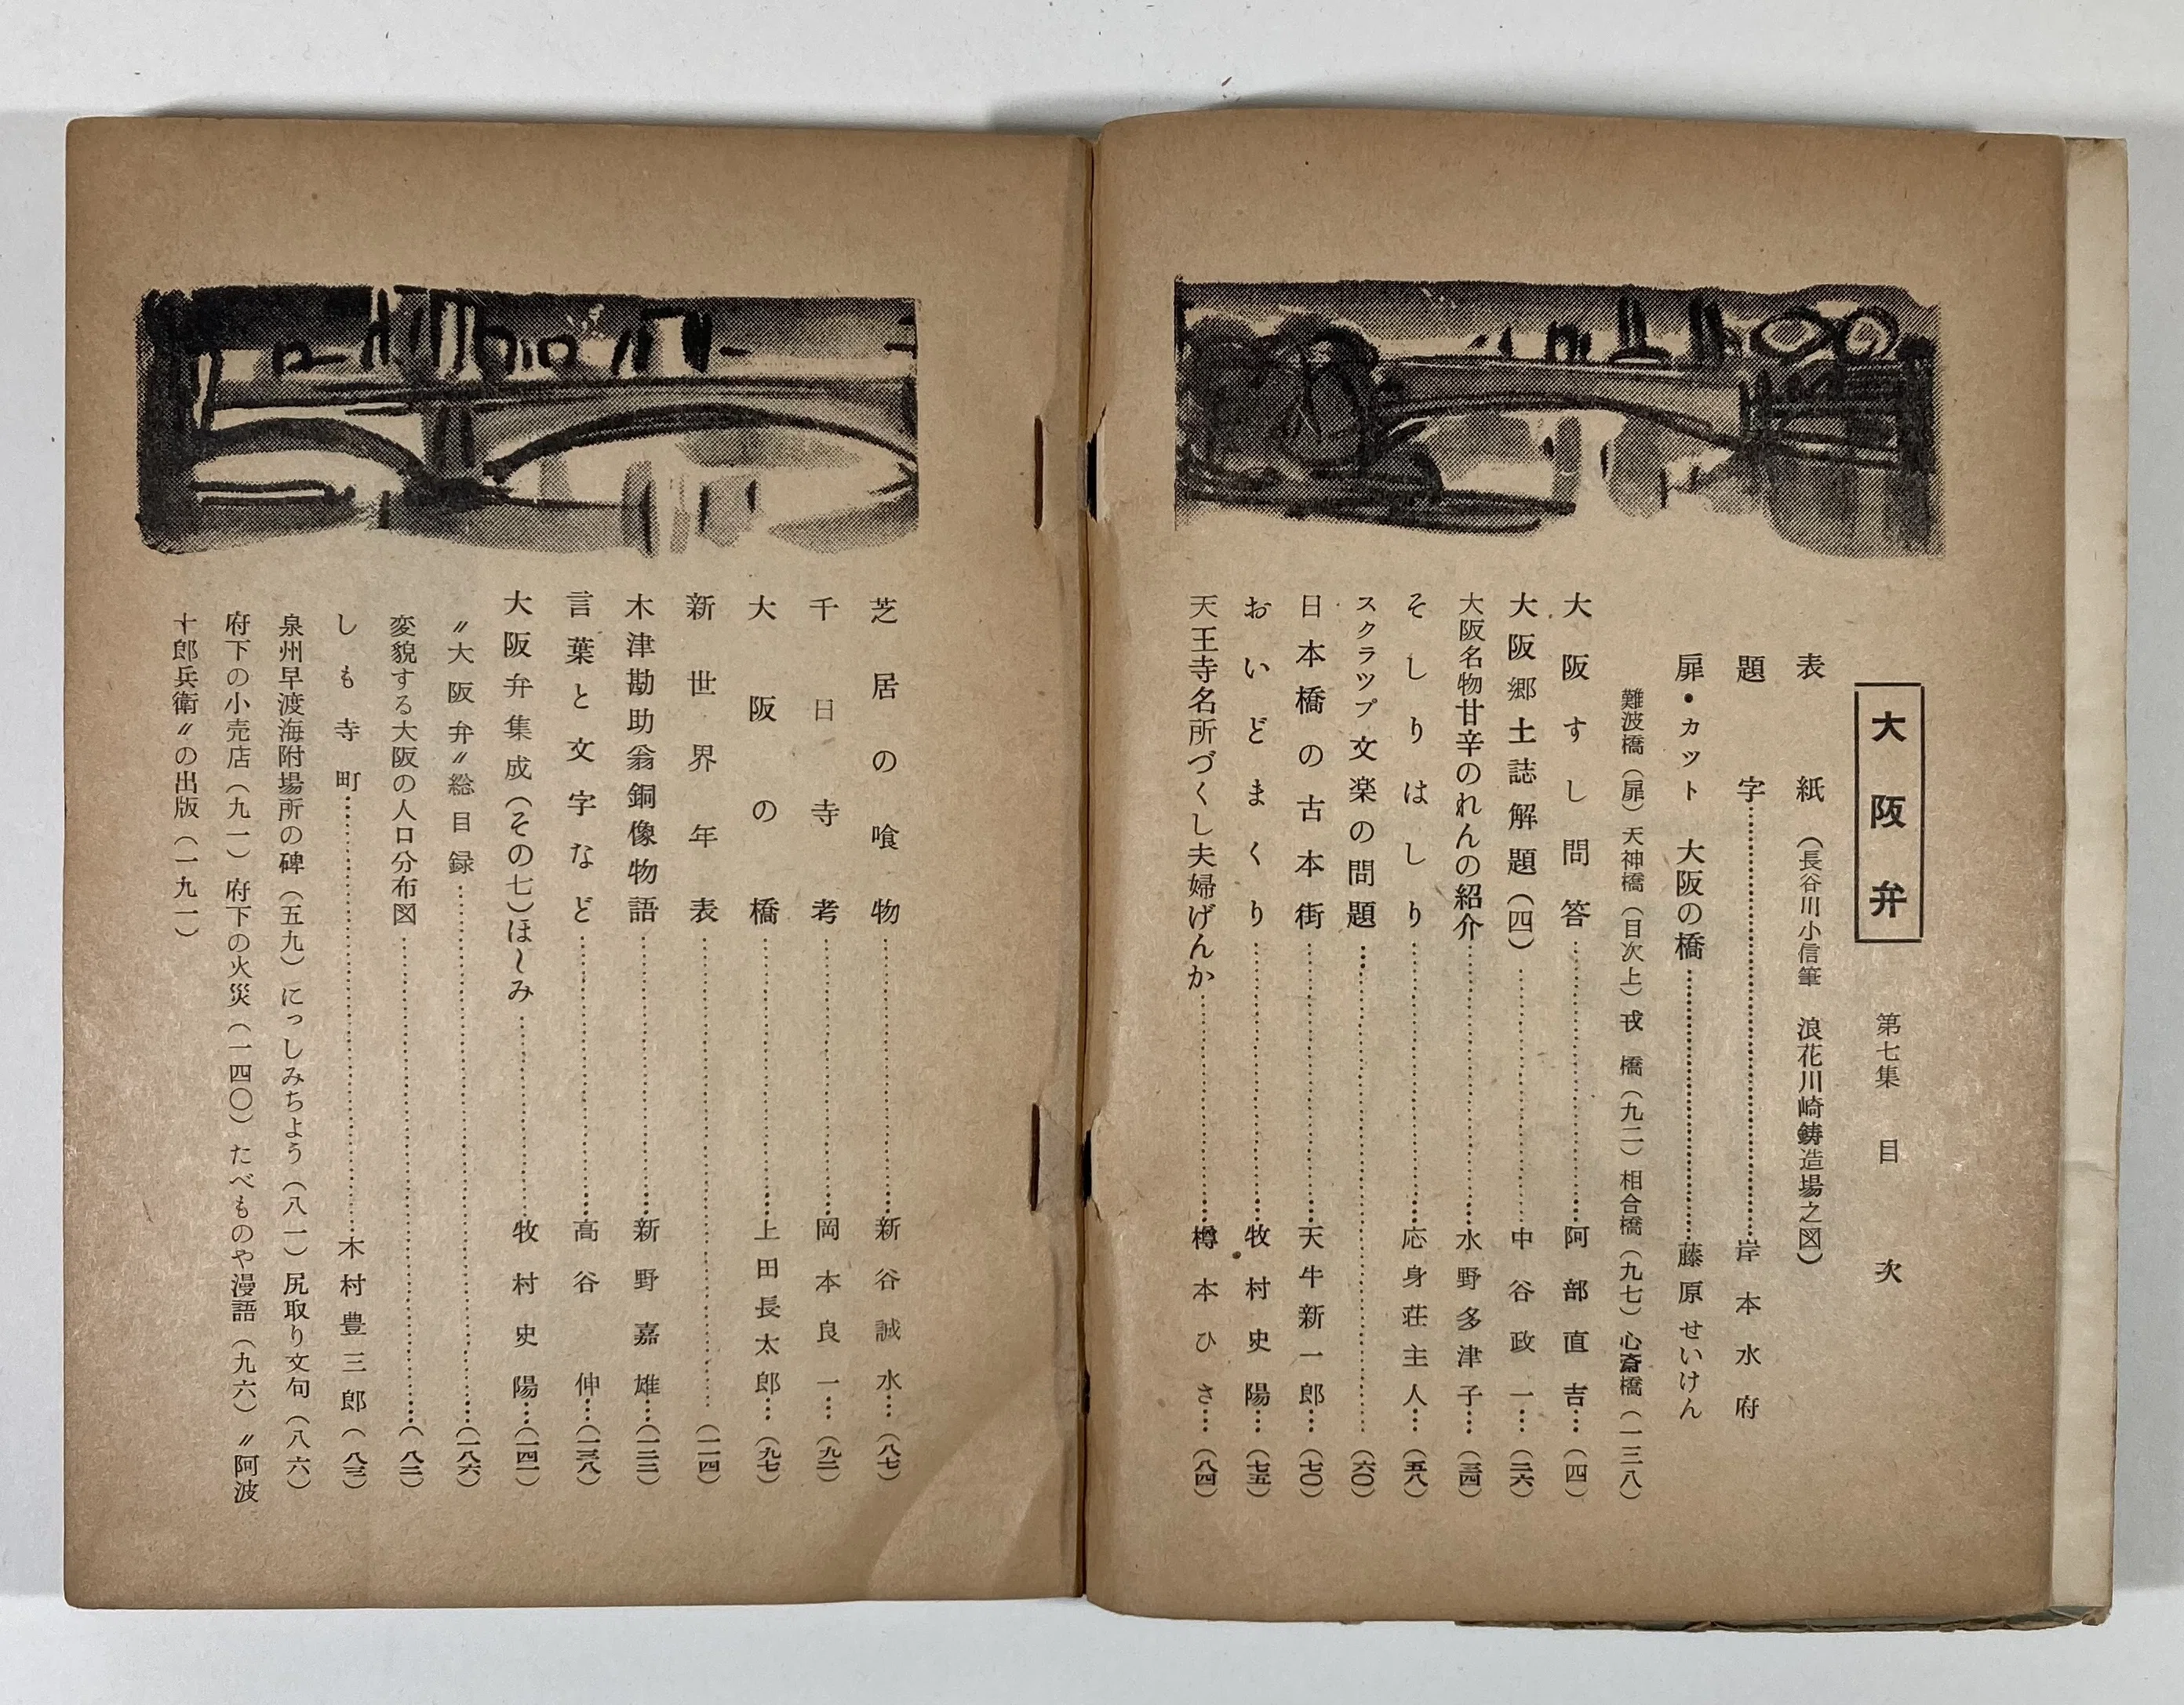 大阪弁　第七集　目次
表紙（長谷川小信筆　浪花川崎鋳造場之図）
題字……岸本水府
扉・カット　大阪の橋……藤原せいけん
難波橋（扉）天神橋（目次上）戎橋（九二）相合橋（九七）心斎橋（一三八）
大阪すし問答……阿部直吉…（四）
大阪郷土誌解題（四）……中谷政一…（二六）
大阪名物甘辛のれんの紹介……水野多津子…（三四）
そしりはしり……応身荘主人…（五八）
スクラップ文楽の問題……（六〇）
日本橋の古本街……天牛新一郎…（七〇）
おいどまくり……牧村史陽…（七五）
天王寺名所づくし夫婦げんか……樽本ひさ…（八四）
芝居の喰物……新谷誠水…（八七）
千日寺考……岡本良一…（九二）
大阪の橋……上田長太郎…（九七）
新世界年表……（一一四）
木津勘助翁銅像物語……新野嘉雄…（一二二）
言葉と文字など……高谷伸…（一三八）
大阪弁集成（その七）ほ〜み……牧村史陽…（一四一）
〃大阪弁〃総目録……（一八六）
変貌する大阪の人口分布図……（八二）
しも寺町……木村豊三郎（八三）
泉州早渡海附場所の碑（五九）にっしみちよう（八一）尻取り文句（八六）
府下の小売店（九一）府下の火災（一四〇）たべものや漫語（九六）〃阿波
十郎兵衛〃の出版（一九一）